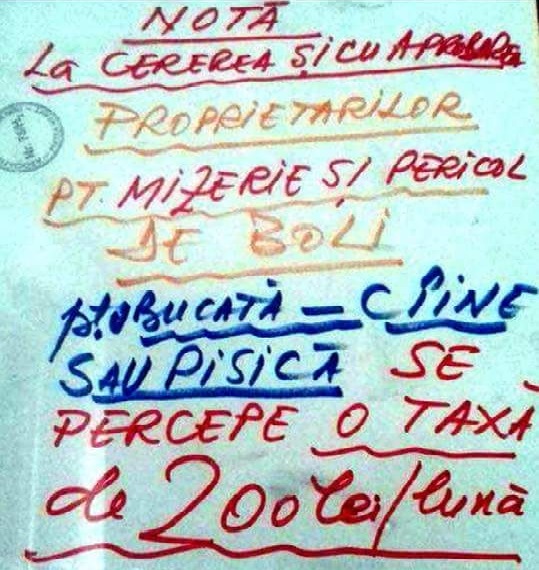 NOTĂ
La CEREREA ȘI CU APROBAREA
PROPRIETARILOR
PT. MIZERIE ȘI PERICOL
DE BOLI
pt. O BUCATĂ — CÎINE
SAU PISICĂ SE
PERCEPE O TAXĂ
de 200 lei/lună